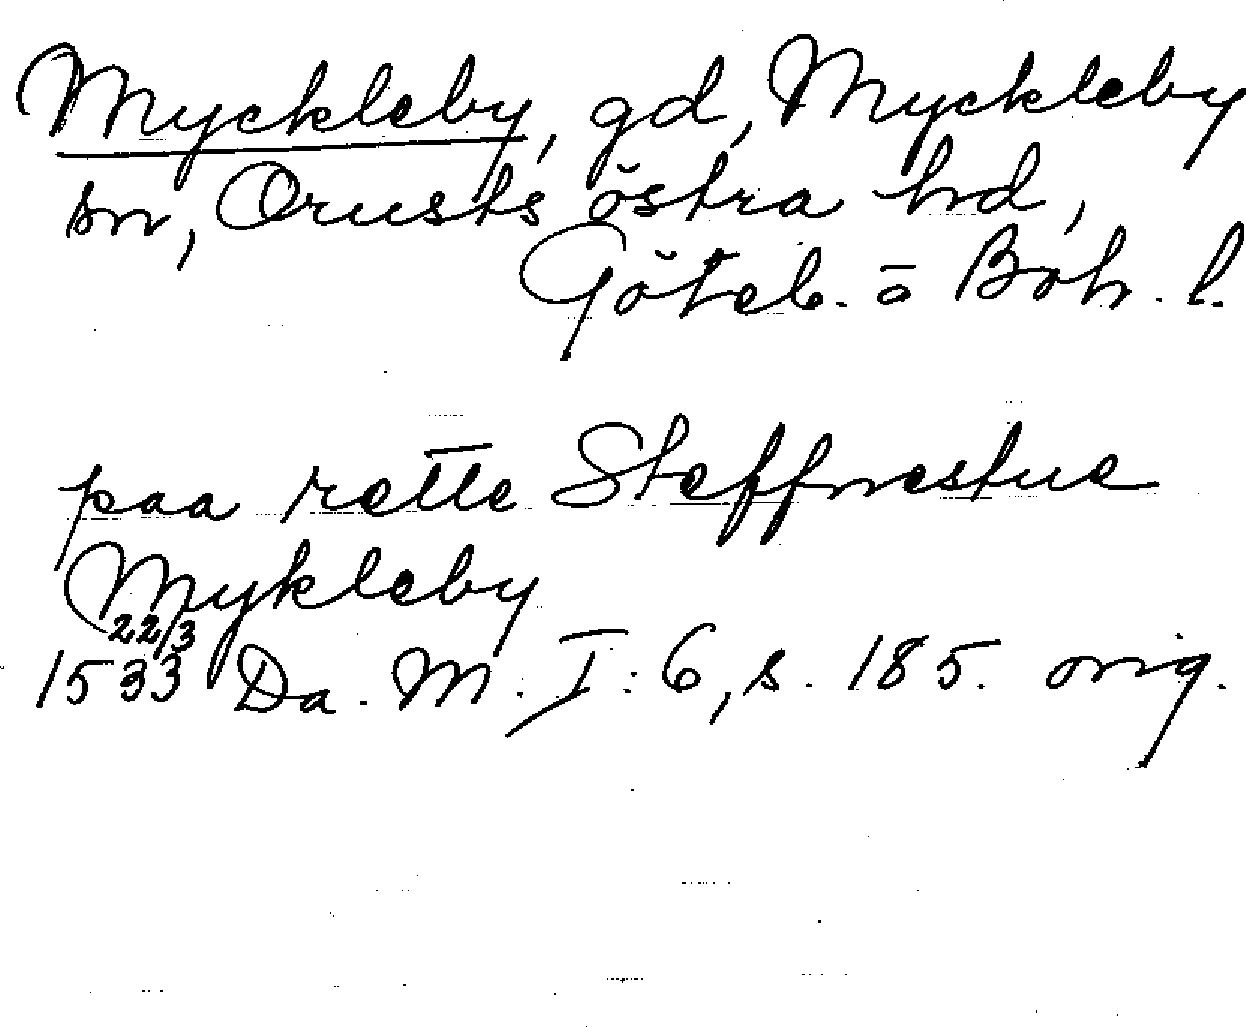 Myckleby, gd, Myckleby
sn, Orusts östra hd,
Göteb. o Boh. l.
paa rette Steffnestue
Mykleby
22/3
1533 Da. M. I: 6, s. 185. orig.